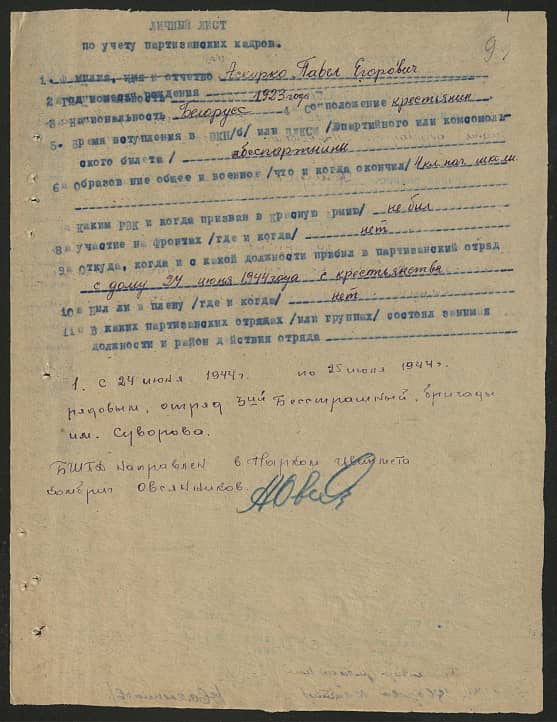 ЛИЧНЫЙ ЛИСТ
по учету партизанских кадров.
9
1. Фамилия, имя и отчество Ажирко Павел Егорович
2. Год рождения 1923 года
3. Национальность Белорусс 4. Соцположение крестьянин
5. Время вступления в ВКП/б/ или ВЛКСМ /№ партийного или комсомоль-
ского билета /
6. Образование общее и военное /что и когда окончил/ 4 кл. нач. школы
Каким РВК и когда призван в Красную армию/ не был
8. участие на фронтах /где и когда/ нет
9. Откуда, когда и с какой должности прибыл в партизанский отряд
с дому 24 июня 1944 года с крестьянства
10. Был ли в плену /где и когда/ нет
11. В каких партизанских отрядах /или группах/ состоял занимая
должности и район действия отряда
1. С 24 июня 1944 г. по 25 июля 1944 г.
рядовым, отряд 3ий Бесстрашный, бригады
им. Суворова.
БШПД направлен в Нарком
Комбриг Овсянников.